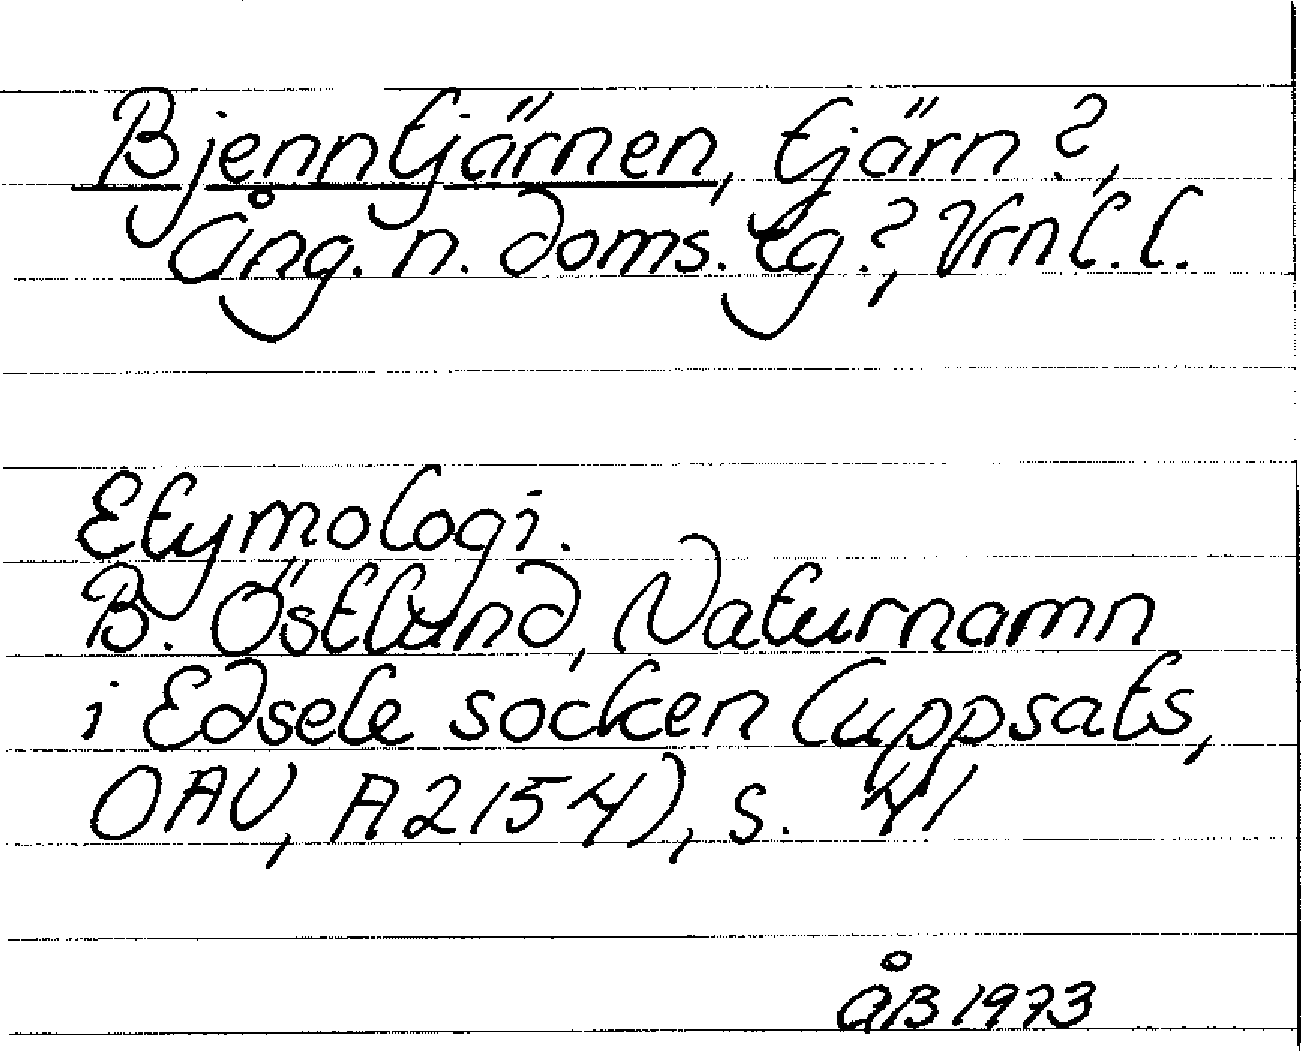 Bjenntjärnen, tjärn?,
Ång. n. doms. tg.?, Vrnl. l.
Etymologi.
B. Östlund, Naturnamn
i Edsele socken (uppsats,
OAU, A2154), s. 41
ÅB 1973